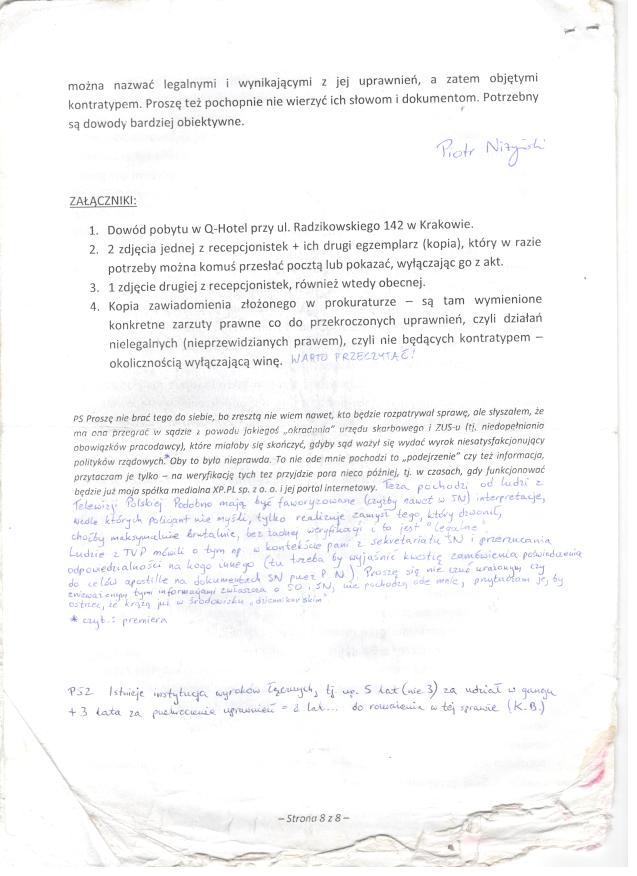 można nazwać legalnymi i wynikającymi z jej uprawnień, a zatem objętymi
kontratypem. Proszę też pochopnie nie wierzyć ich słowom i dokumentom. Potrzebny
są dowody bardziej obiektywne.
Piotr Niżyński
ZAŁĄCZNIKI:
1. Dowód pobytu w Q-Hotel przy ul. Radzikowskiego 142 w Krakowie.
2. 2 zdjęcia jednej z recepcjonistek + ich drugi egzemplarz (kopia), który w razie
potrzeby można komuś przesłać pocztą lub pokazać, wyłączając go z akt.
3. 1 zdjęcie drugiej z recepcjonistek, również wtedy obecnej.
4. Kopia zawiadomienia złożonego w prokuraturze – są tam wymienione
konkretne zarzuty prawne co do przekroczonych uprawnień, czyli działań
nielegalnych (nieprzewidzianych prawem), czyli nie będących kontratypem –
okolicznością wyłączającą winę. WARTO PRZECZYTAĆ!
PS Proszę nie brać tego do siebie, bo zresztą nie wiem nawet, kto będzie rozpatrywał sprawę, ale słyszałem, że
ma ona przegrać w sądzie z powodu jakiegoś „okradania" urzędu skarbowego i ZUS-u (tj. niedopełniania
obowiązków pracodawcy), które miałoby się skończyć, gdyby sąd ważył się wydać wyrok niesatysfakcjonujący
polityków rządowych.* Oby to było nieprawda. To nie ode mnie pochodzi to „podejrzenie" czy też informacja,
przytaczam je tylko – na weryfikację tych tez przyjdzie pora nieco później, tj. w czasach, gdy funkcjonować
będzie już moja spółka medialna XP.PL sp. z o. o. i jej portal internetowy. Teza pochodzi od ludzi z
Telewizji Polskiej. Podobno mają być faworyzowane (czyżby nawet w SN) interpretacje,
wedle których policjant nie myśli, tylko realizuje zamysł tego, który dzwonił,
choćby maksymalnie brutalnie, bez żadnej weryfikacji i to jest "legalne".
Ludzie z TVP mówili o tym np. w kontekście pani z sekretariatu SN i przerzucania
odpowiedzialności na kogo innego (tu trzeba by wyjaśnić kwestię zamówienia poświadczenia
do celów apostille na dokumentach SN przez P. N.). Proszę się nie czuć urażonym czy
znieważonym tymi informacjami zwłaszcza o SO i SN, nie pochodzą ode mnie, przytaczam je, by
ostrzec, że krążą już w środowisku „dziennikarskim"
* czyt.: premiera
PS2 Istnieje instytucja wyroków łącznych, tj. np. 5 lat (nie 3) za udział w gangu
+ 3 lata za przekroczenie uprawnień = 8 lat... do rozważenia w tej sprawie (K.B.)
– Strona 8 z 8 –